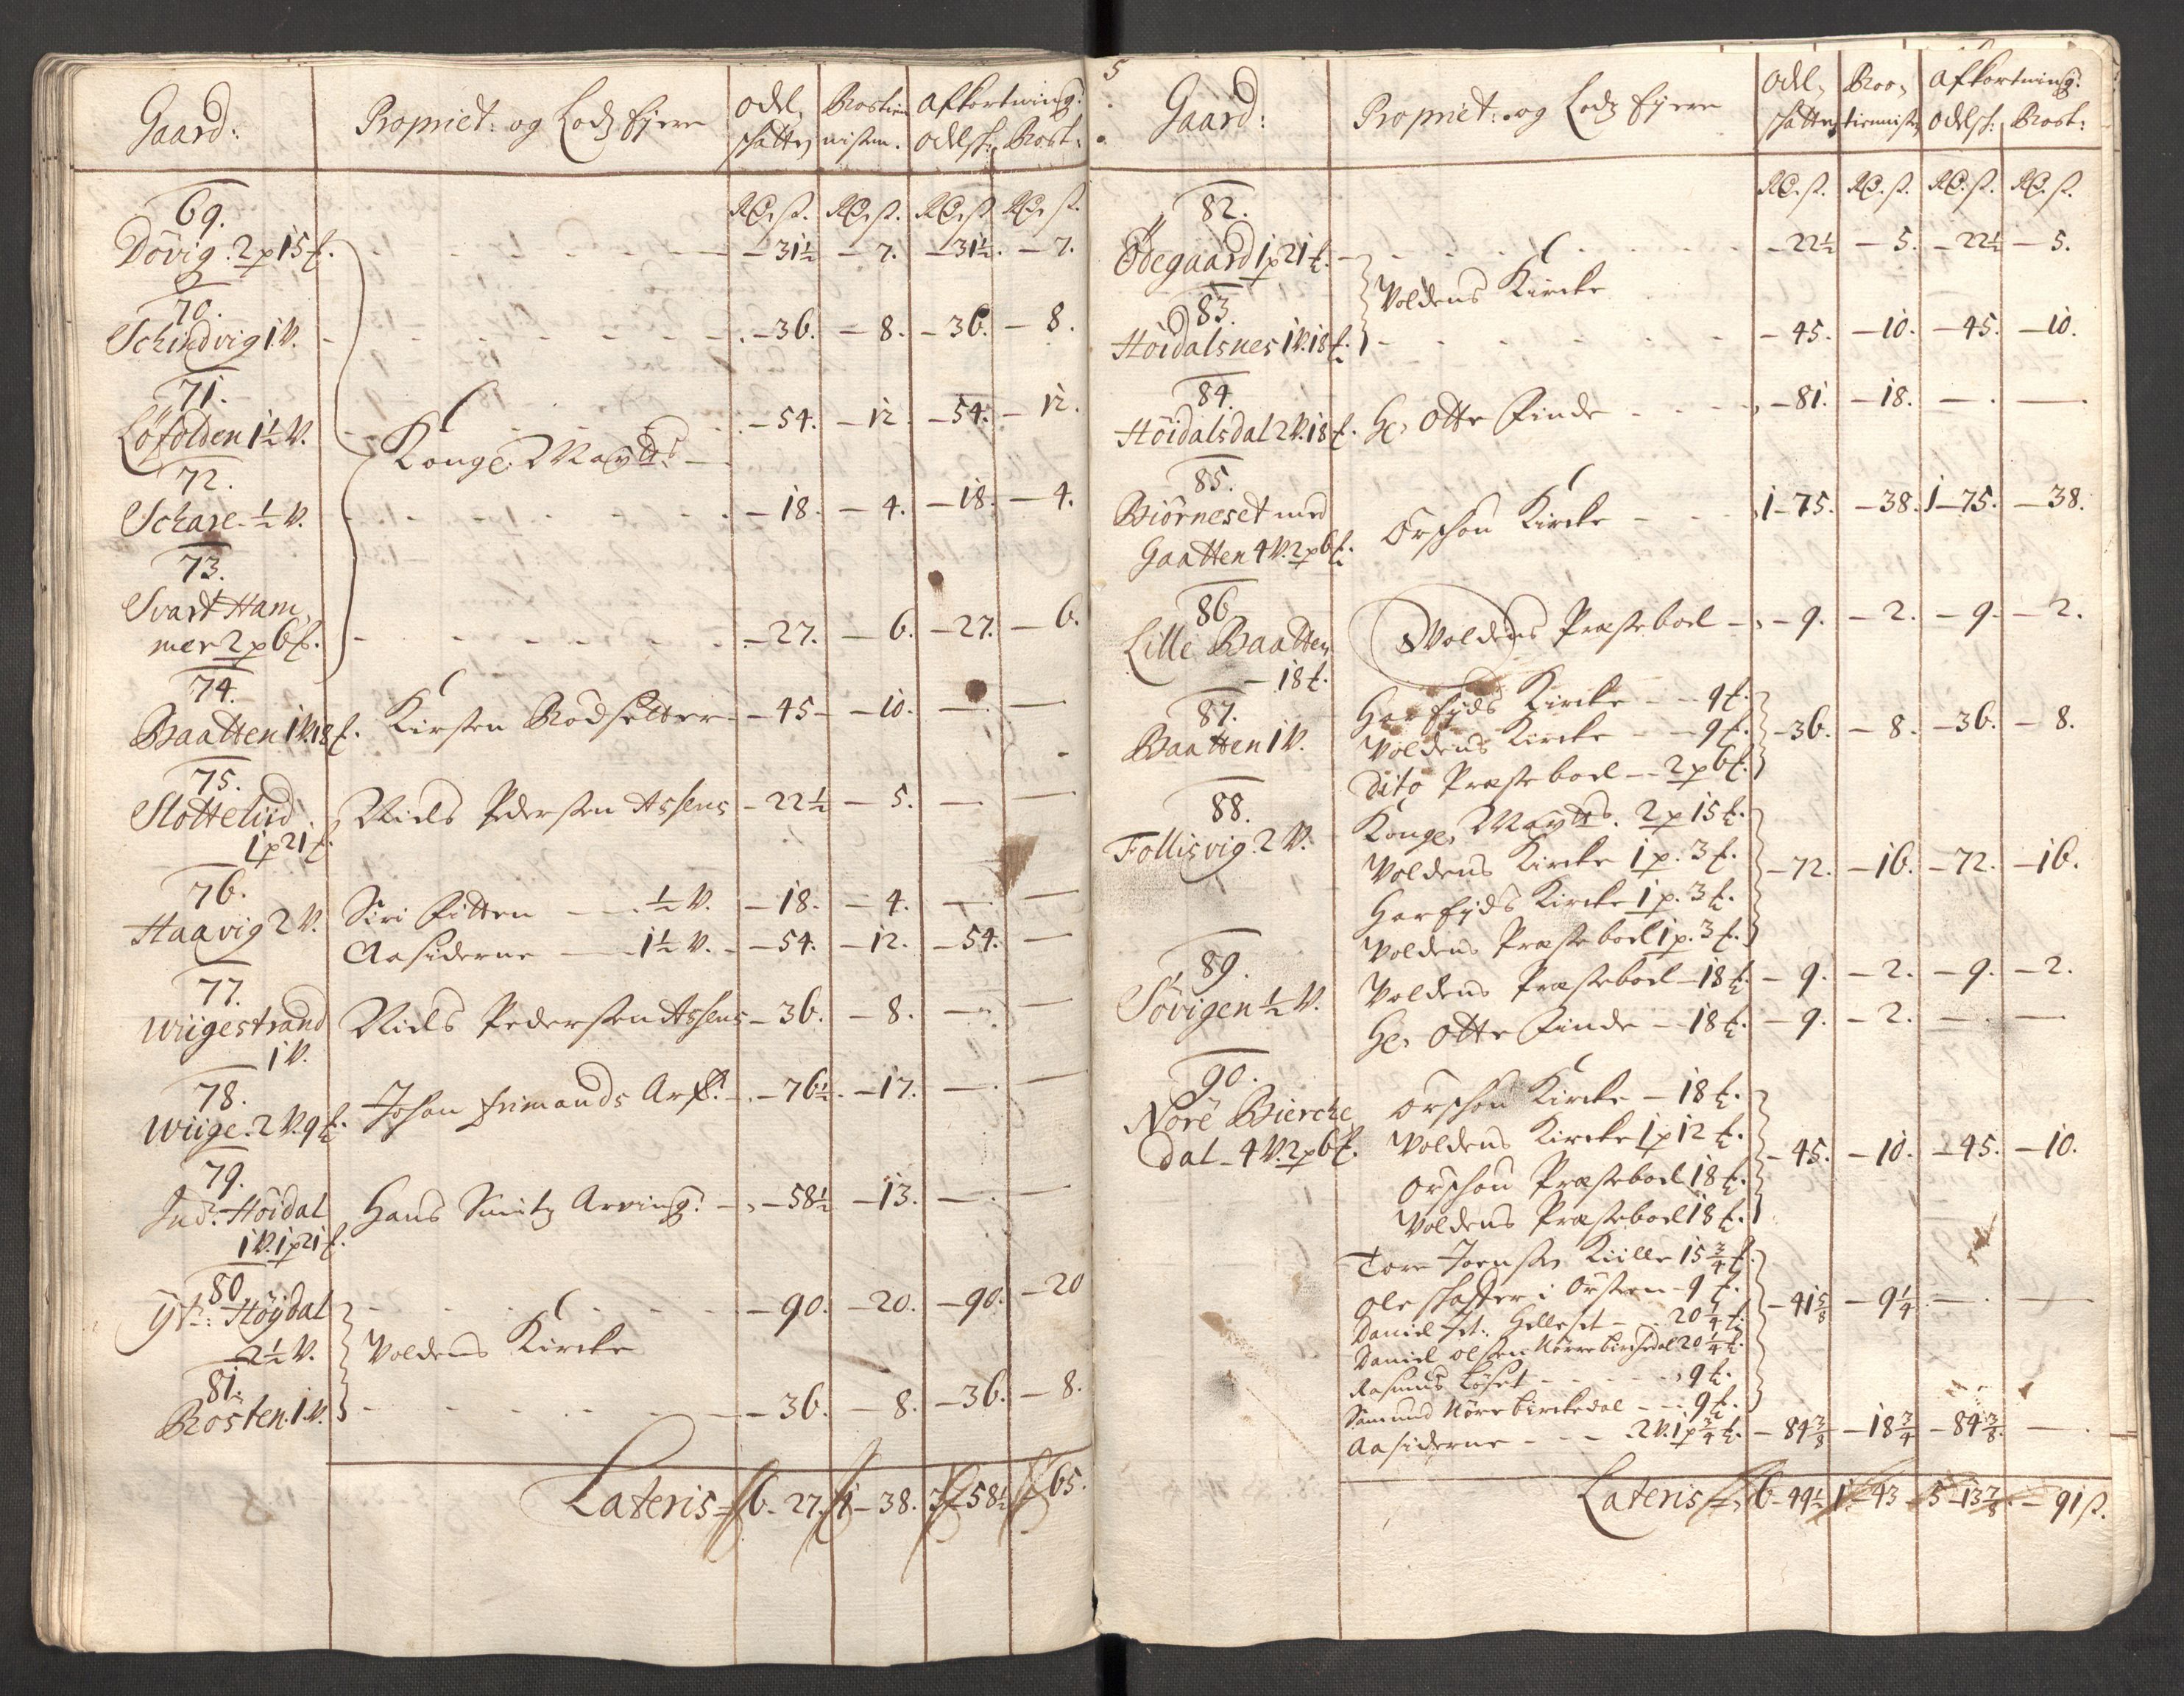 Gaard: Propriet: og Lodz Ejere Odel, Rostien, Afkortning:
schatten nisten. Odelsk: Rost:
Rd. ß. Rd. ß. Rd. ß. Rd. ß.
69.
Dövig. 2 p 15 £. - 31½ - 7. - 31½. - 7.
70.
Schindvig 1 V. - 36. - 8. - 36. - 8.
71.
Löfolden 1½ V. - 54. - 12. - 54. - 12.
Konge. Maytts
72.
Schare - ½ V. - 18. - 4. - 18. - 4.
73.
Svart Ham,
mer 2 p 6 £. - 27. - 6. - 27. - 6.
74.
Baatten 1 V. 18 £. Kirsten Rodsetter - 45 - - 10. - -
75.
Slottelid Niels Pedersen Assens - 22½ - 5. - -
1 p 21 £.
76.
Haavig 2 V. Siri Fitten - ½ V. - 18. - 4. - -
Aasiderne - 1½ V. - 54. - 12. - 54. -
77.
Wiigestrand Niels Pedersen Assens - 36. - 8. - -
1 V.
78.
Wiige. 2 V. 9 £. Johan Frimands Arf: - 76½. - 17. - -
79.
Ind: Höidal Hans Smitz Arving: - 58½ - 13. - -
1 V. 1 p 21 £.
80
Yt: Höydal - 90. - 20. - 90. - 20
2½ V. Voldens Kircke
81.
Rösten. 1. V. - 36. - 8. - 36. - 8.
Lateris - 6 - 27. 1 - 38. 3 - 58½ - 65.
5
Gaard: Propriet: og Lodz Ejere Odel, Ros, Afkortning:
schatten tienniste, Odelsk: Rost:
Rd. ß. Rd. ß. Rd. ß. Rd. ß.
82.
Ödegaard 1 p 21 £. - 22½ - 5. - 22½ - 5.
Voldens Kircke
83.
Höidalsnes 1 V. 18 £. - 45. - 10. - 45. - 10.
84.
Höidalsdal 2 V. 18 £. Hr. Otte Finde - 81. - 18. - -
85.
Biörneset med
Gaatten 4 V. 2 p 6 £. Orschou Kircke 1 - 75. - 38. 1 - 75. - 38.
86
Lille Baatten Woldens Præsteboel - 9. - 2. - 9 - 2.
- 18 £.
87. Harejds Kircke - 9 £.
Baatten 1 V. Voldens Kircke - 9 £. - 36. - 8. - 36. - 8.
Dito Præsteboel - 2 p 6 £.
88. Konge. Maytts. 2 p 15 £.
Follisvig. 2 V. Voldens Kircke 1 p. 3 £. - 72. - 16. - 72. - 16.
Harejds Kircke 1 p. 3 £.
Voldens Præsteboel 1 p. 3 £.
89. Voldens Præsteboel - 18 £. - 9. - 2. - 9. - 2.
Sövigen ½ V. Hr. Otte Finde - 18 £. - 9. - 2. - -
90. Orschou Kircke - 18 £.
Nore Biercke Voldens Kircke 1 p 12 £. - 45. - 10. - 45. - 10.
dal - 4 V. 2 p 6 £. Orschou Præsteboel 18 £.
Voldens Præsteboel 18 £.
Tore Joensen Kiille 15¾ £.
Ole schatter i Örsteen - 9 £. - 41⅝ - 9¼ - -
Daniel Jet: Helleset - 20¼ £.
Daniel Olsen Nörre Birchedal 20¼ £.
Rasmus Löset - 9 £.
Simund Nörre Birckedal - 9 £.
Aasiderne - 2 V. 1 p ¾ £. - 84⅜ - 18¾ - 84⅜ -
Lateris - 6 - 49½ 1 - 43 5 - 13⅞ - 91 ß.